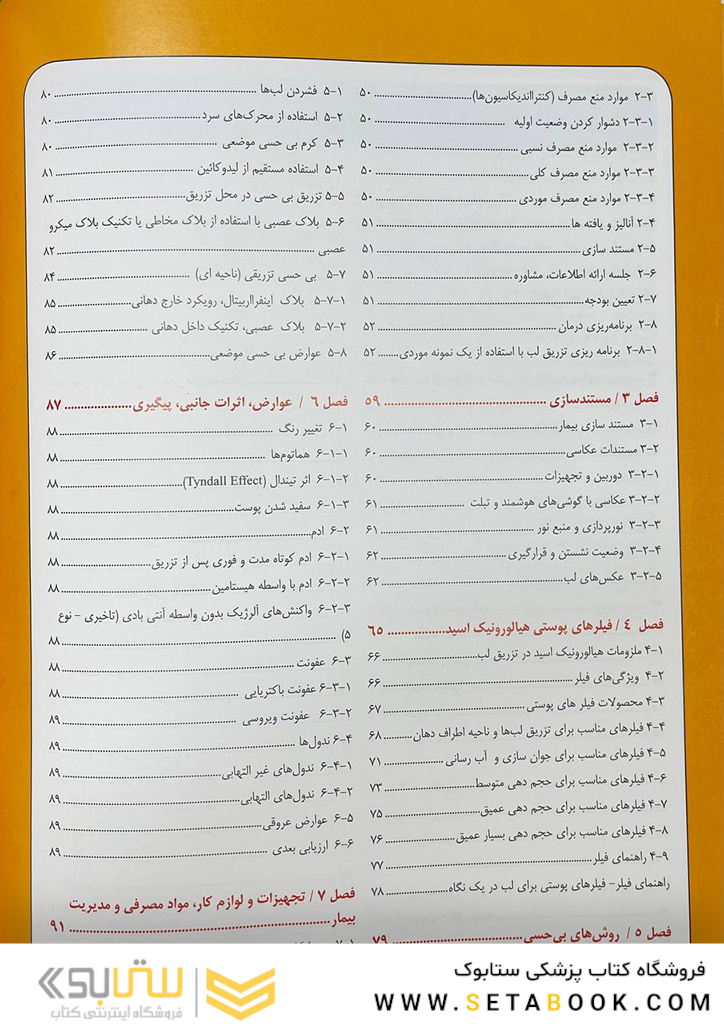 ۲-۳ موارد منع مصرف (کنترااندیکاسیون‌ها) ۵۰
۲-۳-۱ دشوار کردن وضعیت اولیه ۵۰
۲-۳-۲ موارد منع مصرف نسبی ۵۰
۲-۳-۳ موارد منع مصرف کلی ۵۰
۲-۳-۴ موارد منع مصرف موردی ۵۰
۲-۴ آنالیز و یافته ها ۵۱
۲-۵ مستند سازی ۵۱
۲-۶ جلسه ارائه اطلاعات، مشاوره ۵۱
۲-۷ تعیین بودجه ۵۱
۲-۸ برنامه‌ریزی درمان ۵۲
۲-۸-۱ برنامه ریزی تزریق لب با استفاده از یک نمونه موردی ۵۲
فصل ۳ / مستندسازی ۵۹
۳-۱ مستند سازی بیمار ۶۰
۳-۲ مستندات عکاسی ۶۰
۳-۲-۱ دوربین و تجهیزات ۶۰
۳-۲-۲ عکاسی با گوشی‌های هوشمند و تبلت ۶۱
۳-۲-۳ نورپردازی و منبع نور ۶۱
۳-۲-۴ وضعیت نشستن و قرارگیری ۶۲
۳-۲-۵ عکس‌های لب ۶۲
فصل ۴ / فیلرهای پوستی هیالورونیک اسید ۶۵
۴-۱ ملزومات هیالورونیک اسید در تزریق لب ۶۶
۴-۲ ویژگی‌های فیلر ۶۶
۴-۳ محصولات فیلر های پوستی ۶۷
۴-۴ فیلرهای مناسب برای تزریق لب‌ها و ناحیه اطراف دهان ۶۸
۴-۵ فیلرهای مناسب برای جوان سازی و آب رسانی ۷۱
۴-۶ فیلرهای مناسب برای حجم دهی متوسط ۷۳
۴-۷ فیلرهای مناسب برای حجم دهی عمیق ۷۵
۴-۸ فیلرهای مناسب برای حجم دهی بسیار عمیق ۷۶
۴-۹ راهنمای فیلر ۷۷
راهنمای فیلر- فیلرهای پوستی برای لب در یک نگاه ۷۸
فصل ۵ / روش‌های بی‌حسی ۷۹
۵-۱ فشردن لب‌ها ۸۰
۵-۲ استفاده از محرک‌های سرد ۸۰
۵-۳ کرم بی حسی موضعی ۸۰
۵-۴ استفاده مستقیم از لیدوکائین ۸۱
۵-۵ تزریق بی حسی در محل تزریق ۸۲
۵-۶ بلاک عصبی با استفاده از بلاک مخاطی یا تکنیک بلاک میکرو
عصبی ۸۲
۵-۷ بی حسی تزریقی (ناحیه ای) ۸۴
۵-۷-۱ بلاک اینفرااربیتال، رویکرد خارج دهانی ۸۵
۵-۷-۲ بلاک عصبی، تکنیک داخل دهانی ۸۵
۵-۸ عوارض بی حسی موضعی ۸۶
فصل ۶ / عوارض، اثرات جانبی، پیگیری ۸۷
۶-۱ تغییر رنگ ۸۸
۶-۱-۱ هماتوم‌ها ۸۸
۶-۱-۲ اثر تیندال (Tyndall Effect) ۸۸
۶-۱-۳ سفید شدن پوست ۸۸
۶-۲ ادم ۸۸
۶-۲-۱ ادم کوتاه مدت و فوری پس از تزریق ۸۸
۶-۲-۲ ادم با واسطه هیستامین ۸۸
۶-۲-۳ واکنش‌های آلرژیک بدون واسطه آنتی بادی (تاخیری – نوع
۵) ۸۸
۶-۳ عفونت ۸۸
۶-۳-۱ عفونت باکتریایی ۸۸
۶-۳-۲ عفونت ویروسی ۸۹
۶-۴ ندول‌ها ۸۹
۶-۴-۱ ندول‌های غیر التهابی ۸۹
۶-۴-۲ ندول‌های التهابی ۸۹
۶-۵ عوارض عروقی ۸۹
۶-۶ ارزیابی بعدی ۸۹
فصل ۷ / تجهیزات و لوازم کار، مواد مصرفی و مدیریت
بیمار ۹۱
فروشگاه کتاب پزشکی ستابوک
WWW.SETABOOK.COM
ستابوک
فروشگاه اینترنتی کتاب